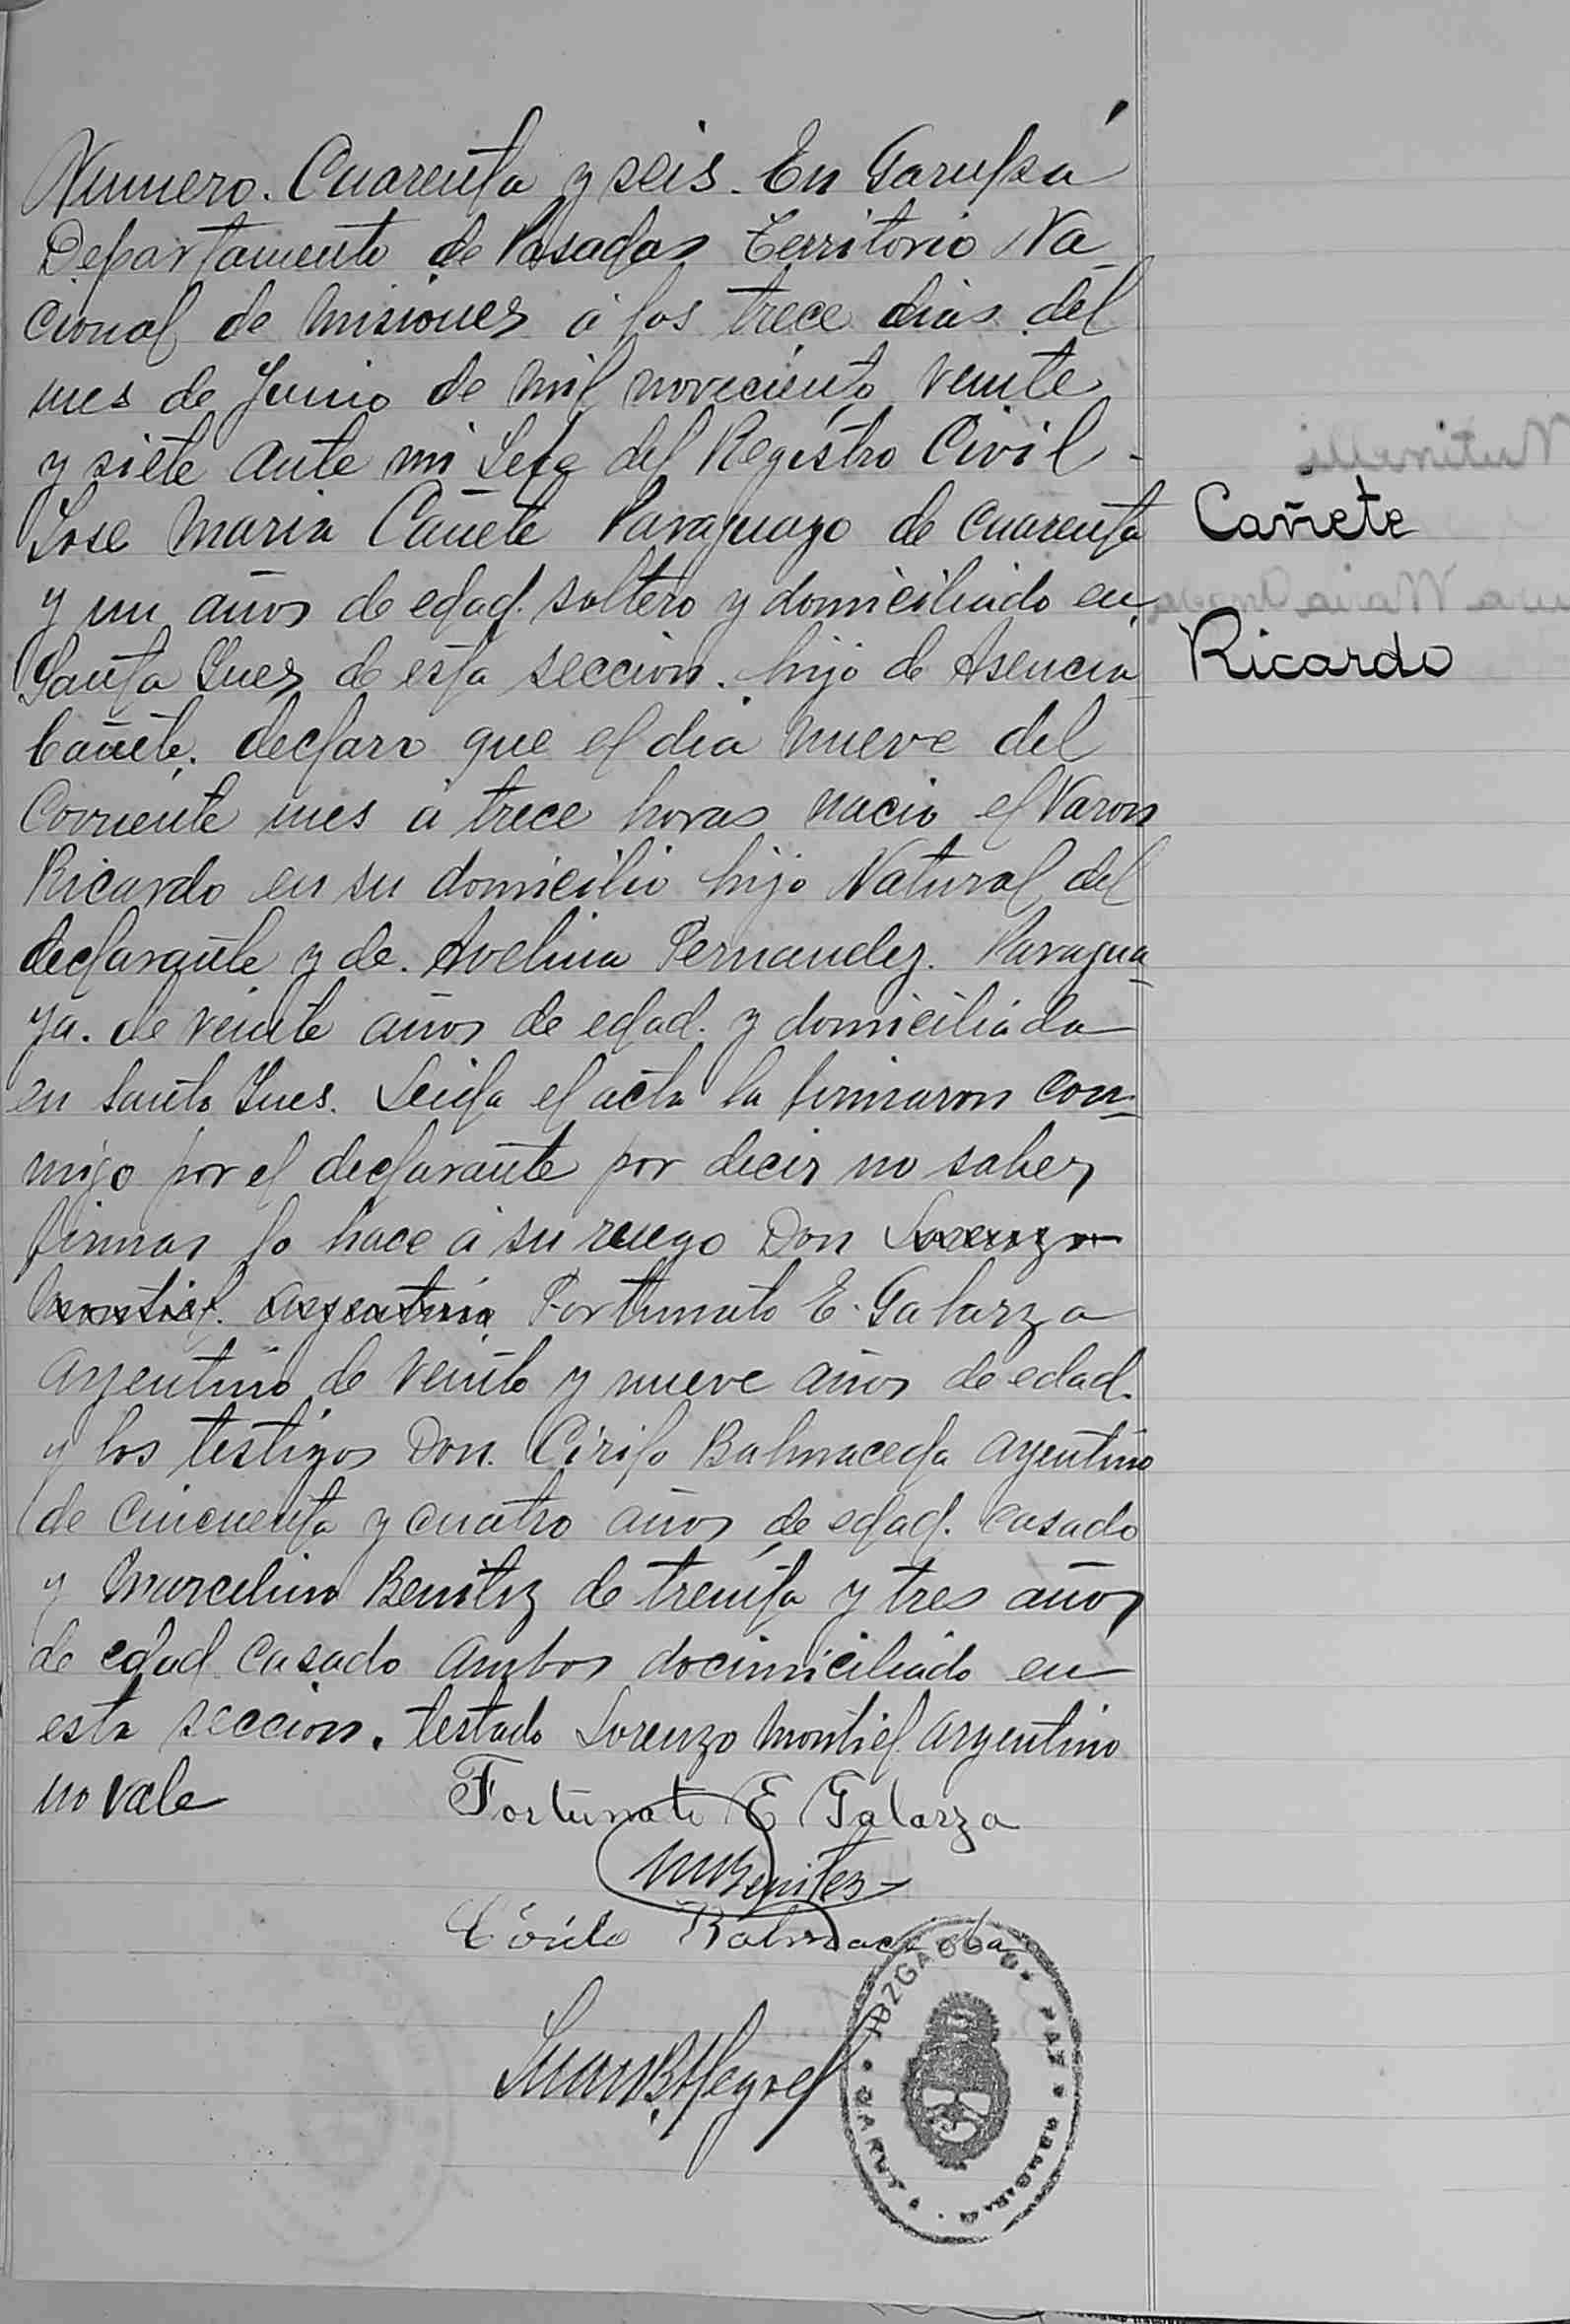 Numero. Cuarenta y seis. En Garupá
Departamento de Posadas Territorio Na
cional de Misiones á los trece dias del
mes de Junio de mil noveciento veinte
y siete ante mi Jefe del Registro Civil -
Jose Maria Cañete Paraguayo de cuarenta
y un años de edad. soltero y domiciliado en
Santa Ines de esta seccion. hijo de Asencia
Cañete. declaro que el dia nueve del
Corriente mes á trece horas nacio el Varon
Ricardo en su domicilio hijo Natural del
declarante y de. Avelina Fernandez. Paragua
ya. de veinte años de edad. y domiciliada
en Santa Ines. Leida el acta la firmaron con-
migo por el declarante por decir no saber
firmar lo hace á su ruego Don Lorenzo
Montiel. argentino Fortunato E. Galarza
argentino de veinte y nueve años de edad.
y los testigos Don. Cirilo Balmaceda argentino
de cincuenta y cuatro años de edad. casado
y Marcelino Benitez de treinta y tres años
de edad casado ambos docimiciliado en
esta seccion. testado Lorenzo Montiel argentino
no vale
Fortunato E Galarza
M Benitez
Cirilo Balmaceda
Juan B
JUZGADO D PAZ
GARUP
Cañete
Ricardo